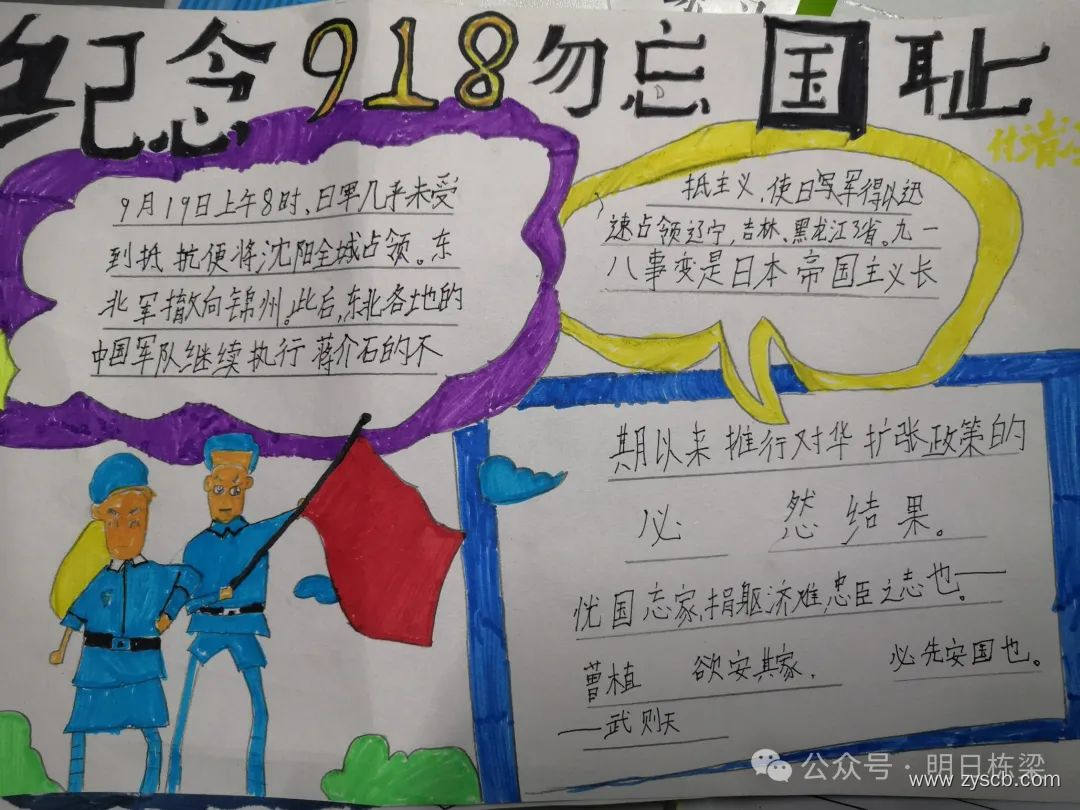 纪念918勿忘国耻
9月19日上午8时、日军几乎未受
到抵抗便将沈阳全城占领。东
北军撤向锦州。此后,东北各地的
中国军队继续执行蒋介石的不
抵主义,使日军得以迅
速占领辽宁,吉林、黑龙江3省。九一
八事变是日本帝国主义长
期以来推行对华扩张政策的
必然结果。
忧国忘家,捐躯济难,忠臣之志也。——
曹植 欲安其家, 必先安国也。
——武则天
公众号·明日栋梁
www.zyscb.com